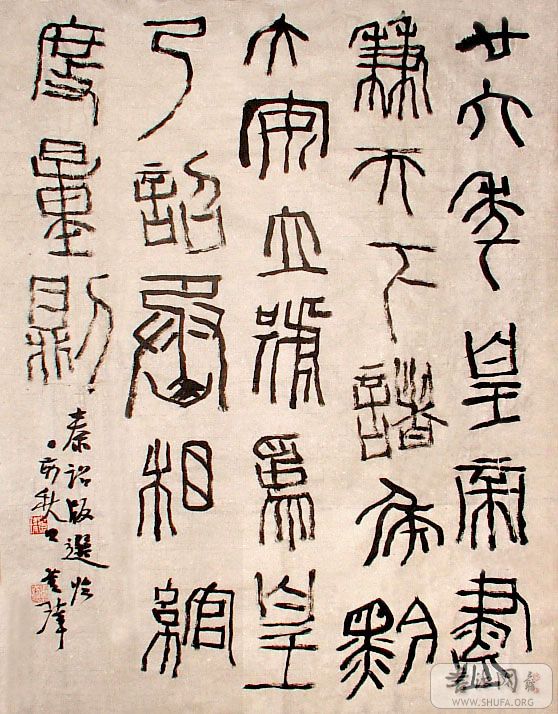 廿六年皇帝盡
兼天下諸侯黔
大安立號為皇
乃詔丞相綰
度量則
秦詔版選臨
亥秋
书法网
WWW.SHUFA.ORG